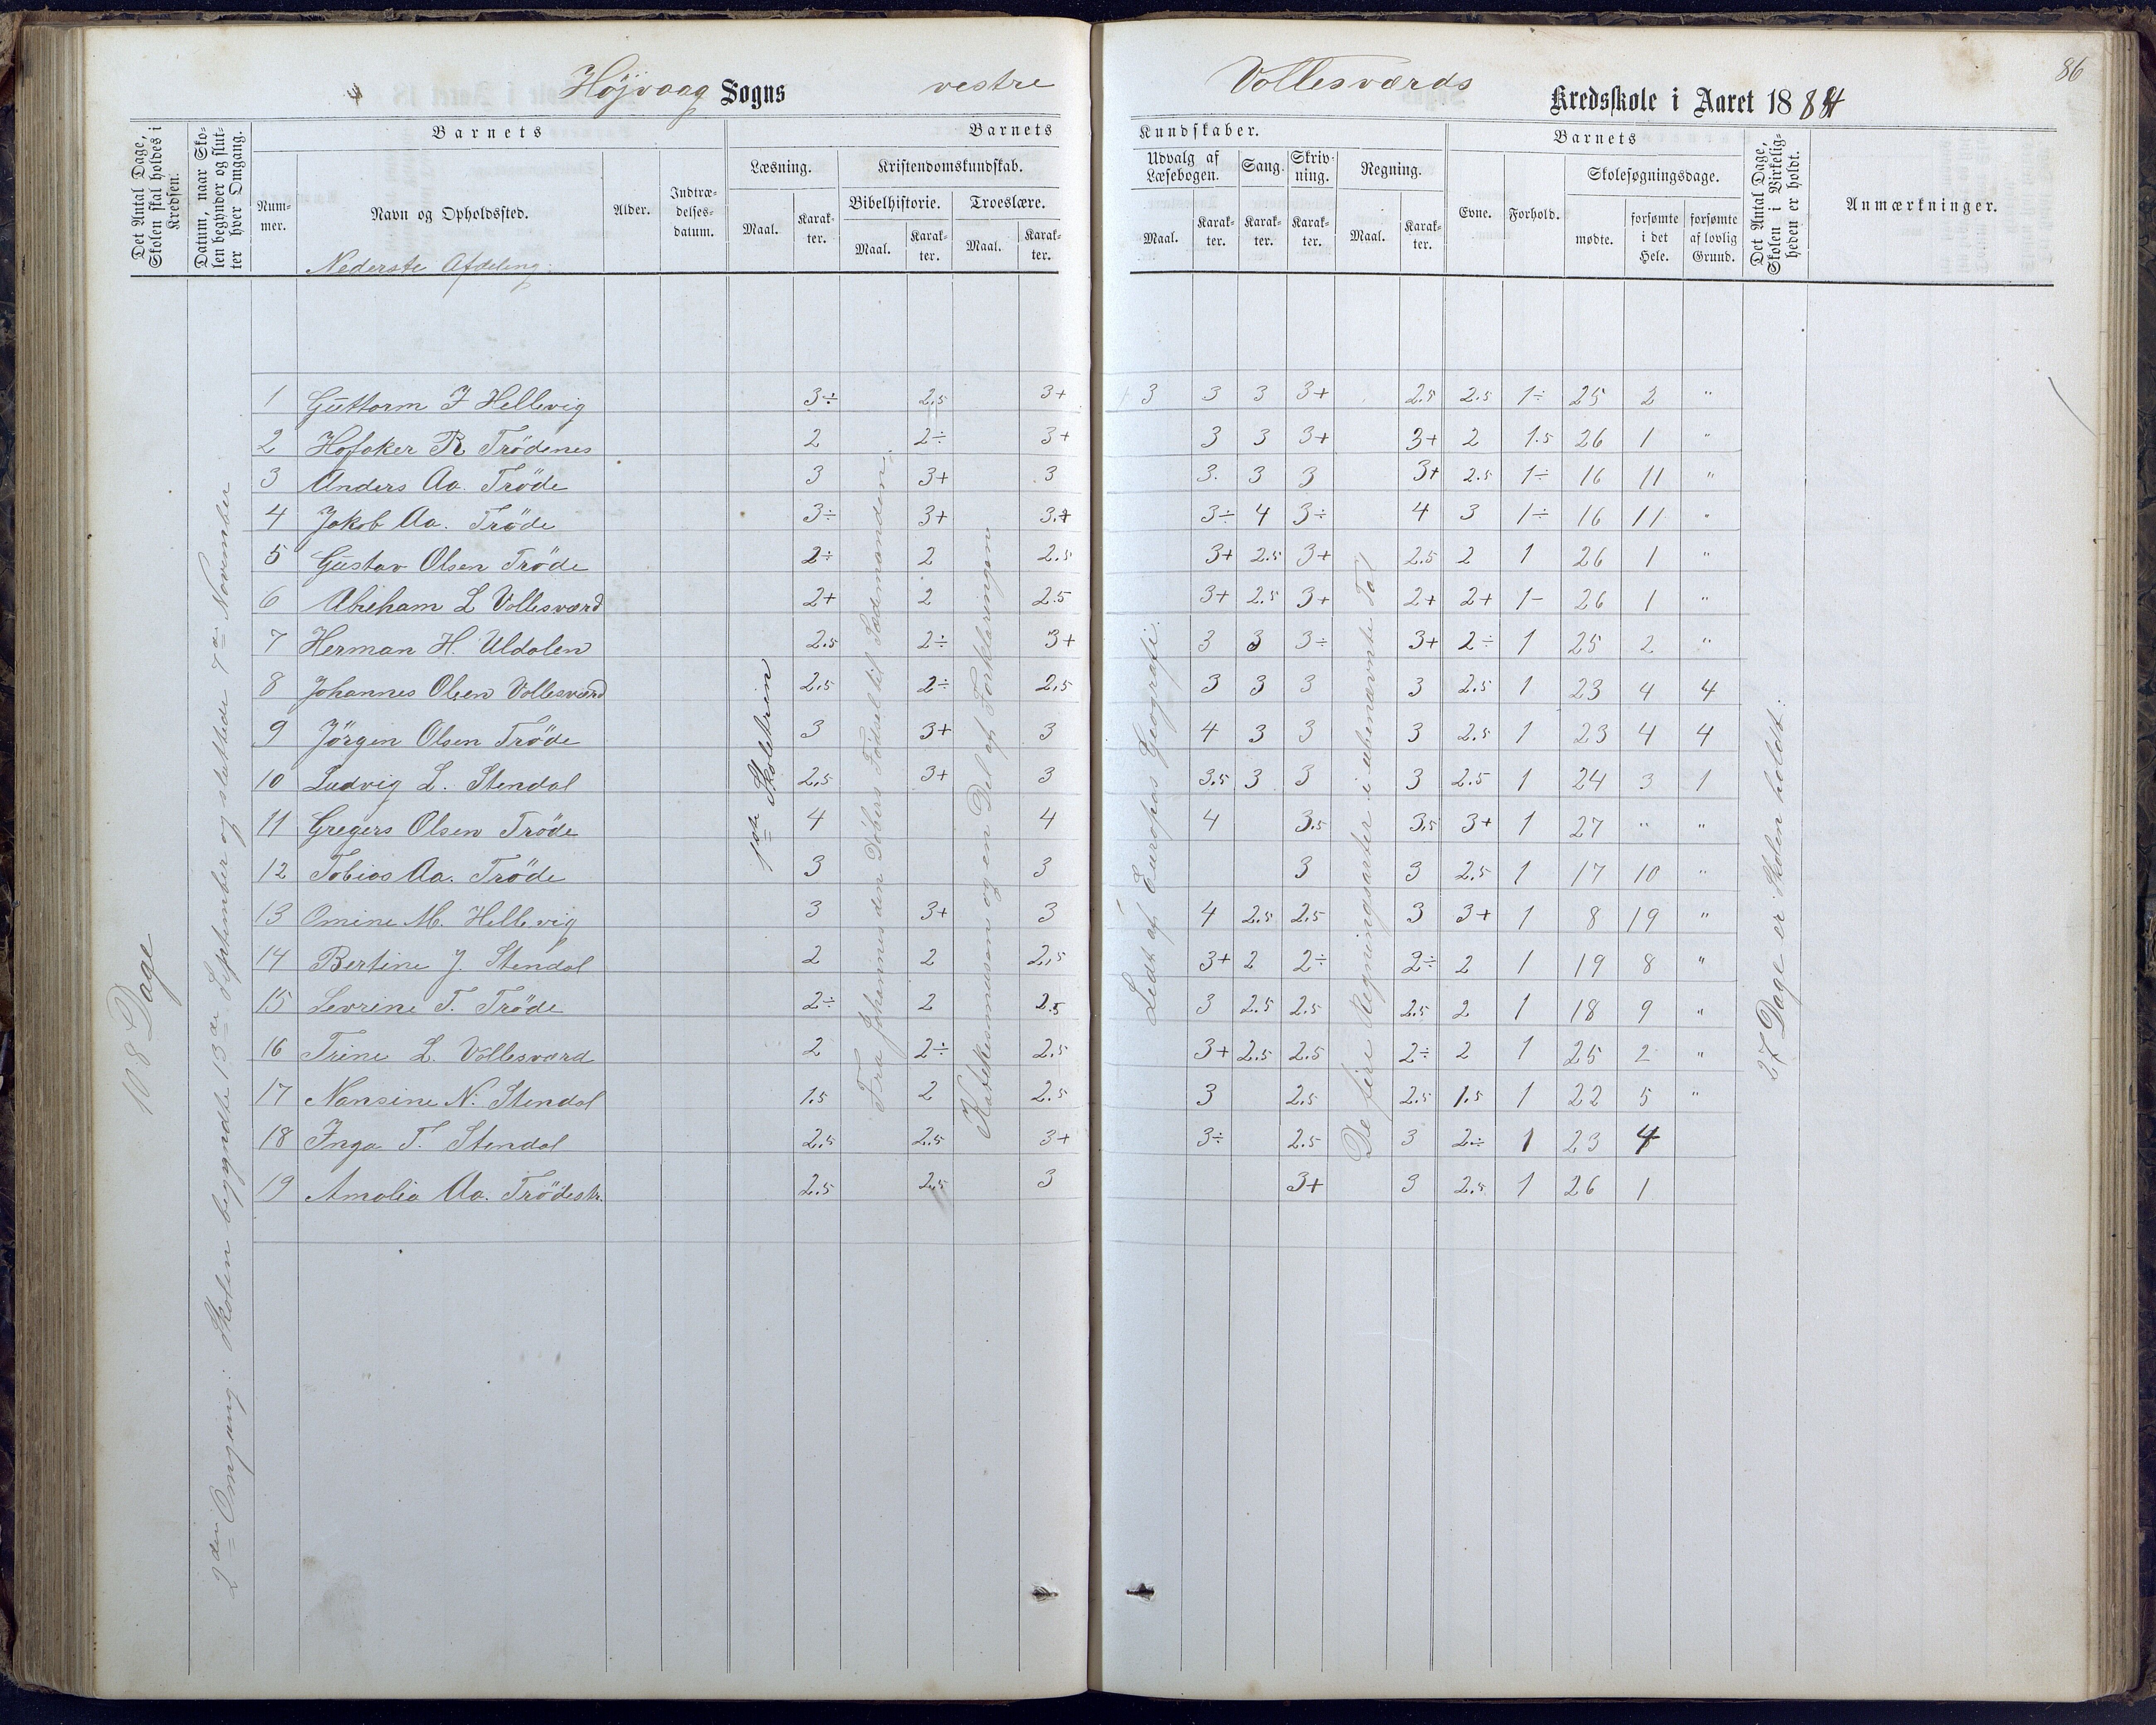 Höjvaag Sogns vestre Vollesværds Kredsskole i Aaret 1884
86
Det Antal Dage, Skolen skal holdes i Kredsen.
Datum, naar Skolen begynder og slutter hver Omgang.
Barnets
Nummer.
Navn og Opholdssted.
Nederste Afdeling.
Alder.
Indtrædelsesdatum.
Barnets Kundskaber.
Læsning.
Maal.
Karakter.
Kristendomskundskab.
Bibelhistorie.
Maal.
Karakter.
Troeslære.
Maal.
Karakter.
Udvalg af Læsebogen.
Maal.
Karakter.
Sang.
Karakter.
Skrivning.
Karakter.
Regning.
Maal.
Karakter.
Barnets
Evne.
Forhold.
Skolesøgningsdage.
mødte.
forsømte i det Hele.
forsømte af lovlig Grund.
Det Antal Dage, Skolen i Virkeligheden er holdt.
Anmærkninger.
108 Dage
2den Omgang: Skolen begyndte 13de September og sluttede 7de November
1ste Skoletrin
Fra Johannes den Døbers Fødsel til Sædemanden.
Katekismusen og en Del af Forklaringen
Lidt af Europas Geografi.
De fire Regningsarter i ubenævnte Tal
27 Dage er Skolen holdt.
1 Guttorm J Hellevig 3÷ 2,5 3+ 3 3 3 3+ 2.5 2.5 1÷ 25 2 "
2 Hofaker R Trödenes 2 2÷ 3+ 3 3 3+ 3+ 2 1.5 26 1 "
3 Anders Aa. Tröde 3 3+ 3 3. 3 3 3+ 2.5 1÷ 16 11 "
4 Jakob Aa. Tröde 3÷ 3+ 3.+ 3÷ 4 3÷ 4 3 1÷ 16 11 "
5 Gustav Olsen Tröde 2÷ 2 2.5 3+ 2.5 3+ 2.5 2 1 26 1 "
6 Abreham L Vollesværd 2+ 2 2.5 3+ 2.5 3+ 2+ 2+ 1- 26 1 "
7 Herman H. Uldalen 2.5 2÷ 3+ 3 3 3÷ 3+ 2÷ 1 25 2 "
8 Johannes Olsen Vollesværd 2,5 2÷ 2,5 3 3 3 3 2.5 1 23 4 4
9 Jörgen Olsen Tröde 3 3+ 3 4 3 3 3 2.5 1 23 4 4
10 Ludvig L. Stendal 2,5 3+ 3 3.5 3 3 3 2.5 1 24 3 1
11 Gregers Olsen Tröde 4 4 4 3.5 3,5 3+ 1 27 " "
12 Tobias Aa. Tröde 3 3 3 3 2.5 1 17 10 "
13 Omine M. Hellevig 3 3+ 3 4 2.5 2.5 3 3+ 1 8 19 "
14 Bertine J. Stendal 2 2 2,5 3+ 2 2÷ 2÷ 2 1 19 8 "
15 Sevrine T. Tröde 2÷ 2 2.5 3 2.5 2.5 2.5 2 1 18 9 "
16 Trine L. Vollesværd 2 2÷ 2.5 3+ 2.5 2.5 2÷ 2 1 25 2 "
17 Nansine N. Stendal 1.5 2 2.5 3 2.5 2.5 1.5 1 22 5 "
18 Inga T. Stendal 2.5 2.5 3+ 3÷ 2.5 3 2÷ 1 23 4
19 Amalia Aa. Trödestr. 2.5 2,5 3 3+ 3 2.5 1 26 1